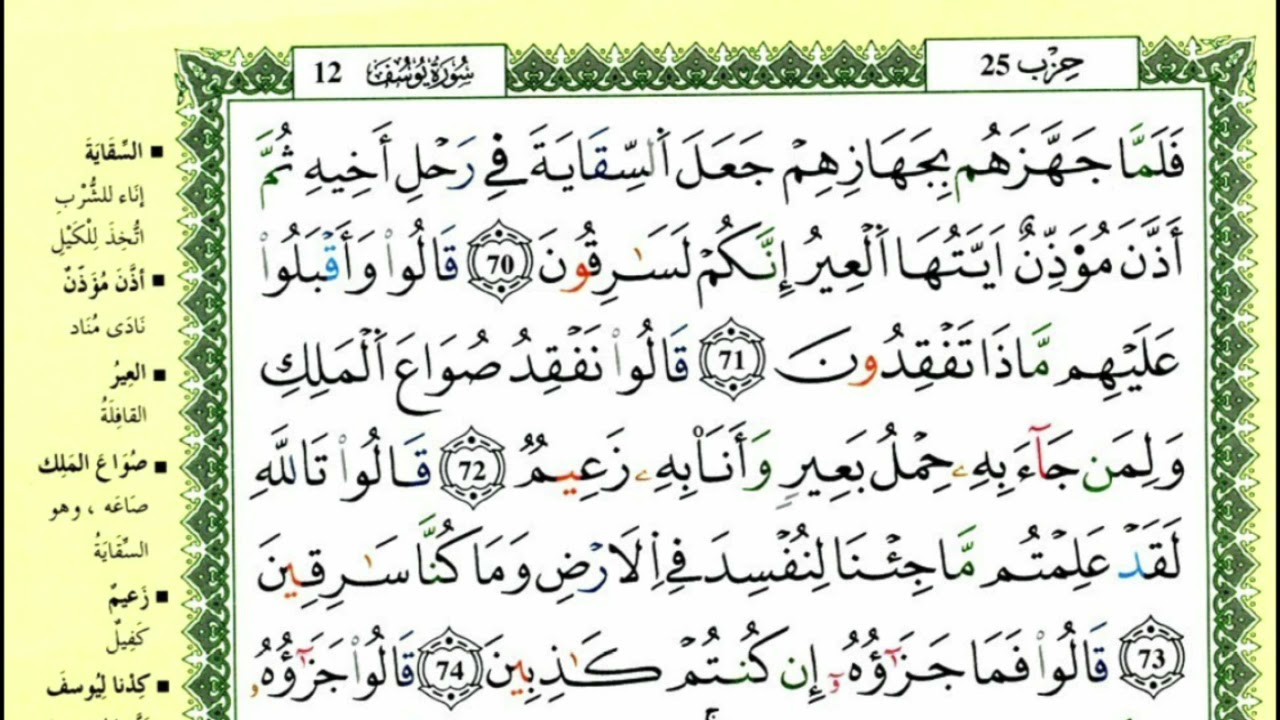 حِزْب 25
سُورَةُ يُوسُفَ 12
فَلَمَّا جَهَّزَهُم بِجَهَازِهِمْ جَعَلَ اَ۬لسِّقَايَةَ فِے رَحْلِ أَخِيهِ ثُمَّ
أَذَّنَ مُؤَذِّنٌ اَيَّتُهَا اَ۬لْعِيرُ إِنَّكُمْ لَسَٰرِقُونَ 70 قَالُواْ وَأَقْبَلُواْ
عَلَيْهِم مَّاذَا تَفْقِدُونَ 71 قَالُواْ نَفْقِدُ صُوَاعَ اَ۬لْمَلِكِ
وَلِمَن جَآءَ بِهِۦ حِمْلُ بَعِيرٖ وَأَنَا۠ بِهِۦ زَعِيمٞ 72 قَالُواْ تَاللَّهِ
لَقَدْ عَلِمْتُم مَّا جِئْنَا لِنُفْسِدَ فِے اِ۬لَارْضِ وَمَا كُنَّا سَٰرِقِينَ
73 قَالُواْ فَمَا جَزَٰٓؤُهُۥٓ إِن كُنتُمْ كَٰذِبِينَ 74 قَالُواْ جَزَٰٓؤُهُۥ
■ السِّقَايَةَ
إنَاء للشُّرْبِ
اتُّخِذَ لِلْكَيْلِ
■ أَذَّنَ مُؤَذِّنٌ
نَادَى مُنَاد
■ العِيرُ
القافِلَةُ
■ صُوَاعَ المَلِك
صَاعَه ، وهو
السِّقَايَةُ
■ زَعيمٌ
كَفِيلٌ
■ كِدْنا لِيُوسفَ